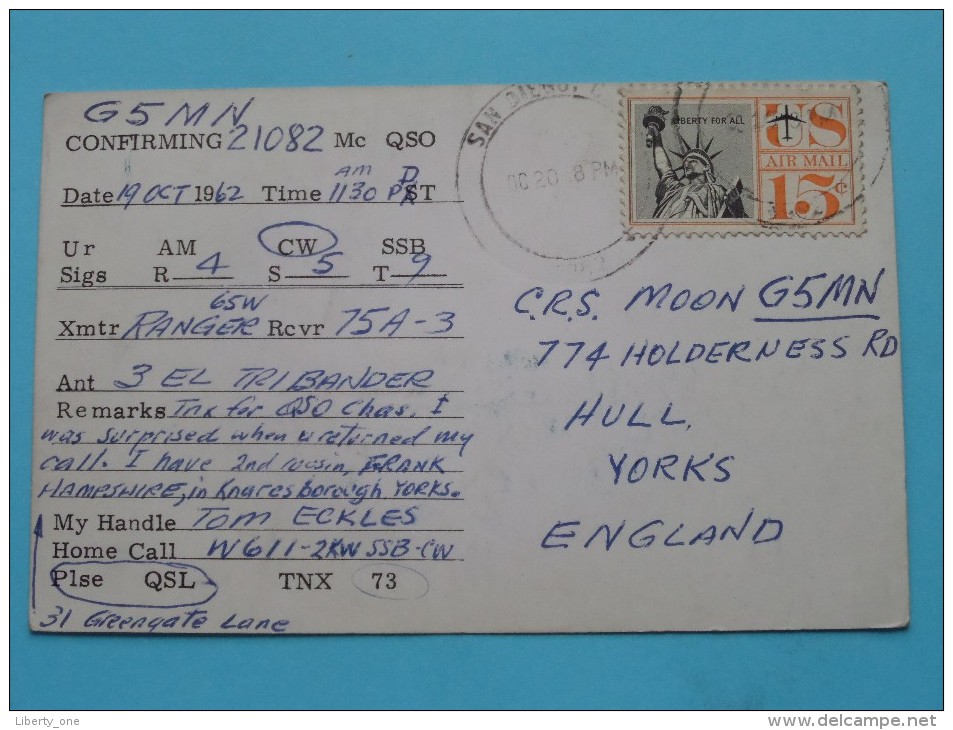 G5MN
CONFIRMING 21082 Mc QSO
Date 19 OCT 1962 Time 1130 AM PDST
Ur AM CW SSB
Sigs R 4 S 5 T 9
65W
Xmtr RANGER Rcvr 75A-3
Ant 3 EL TRIBANDER
Remarks Tnx for QSO Chas. I
was surprised when u returned my
call. I have 2nd cousin, FRANK
HAMPSHIRE, in Knaresborough YORKS.
My Handle TOM ECKLES
Home Call W6 -2KW SSB-CW
Plse QSL TNX 73
31 Greengate Lane
SAN DIEGO,
OC 20 8 PM
LIBERTY FOR ALL
US
AIR MAIL
15¢
C.R.S. MOON G5MN
774 HOLDERNESS RD
HULL,
YORKS
ENGLAND
Liberty_one
www.delcampe.net